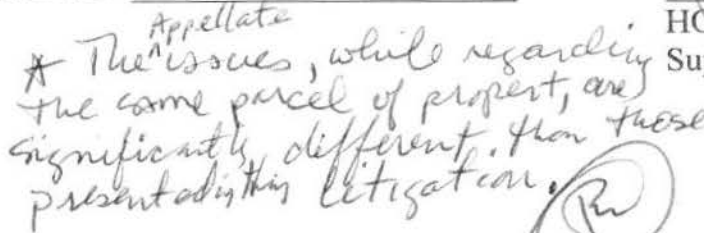 Appellate
* The ^ issues, while regarding
the same parcel of propert, are
significantly different. than those
presented in this litigation.
HO
Su